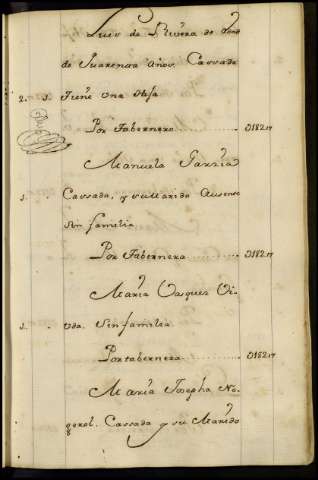 Luis de Rivera de hedad
de Quarenta años. Cassado
2. 1. Tiene una Hija
Por Tabernero ... 0182.17
Manuela Garzia
1. Cassada, y su Marido Ausente
sin familia
Por Tabernera ... 0182.17
Maria Vasques Vi-
1. uda. Sin familia
Por tabernera ... 0182.17
Maria Josepha No-
gerol. Cassada y su Marido